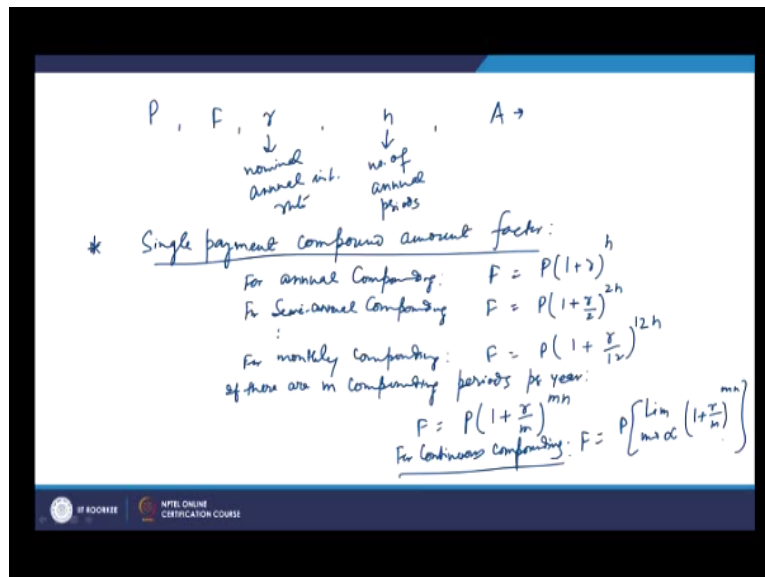 P , F , r , n , A →
↓ ↓
nominal annual int. rate
no. of annual periods
* Single payment compound amount factor:
For annual Compounding: F = P(1+r)^n
For Semi-annual Compounding F = P(1+r/2)^2n
:
For monthly Compounding: F = P(1+r/12)^12n
If there are m compounding periods per year:
F = P(1+r/m)^mn
For Continuous compounding: F = P[Lim m→∞ (1+r/m)^mn]
IIT ROORKEE NPTEL ONLINE CERTIFICATION COURSE